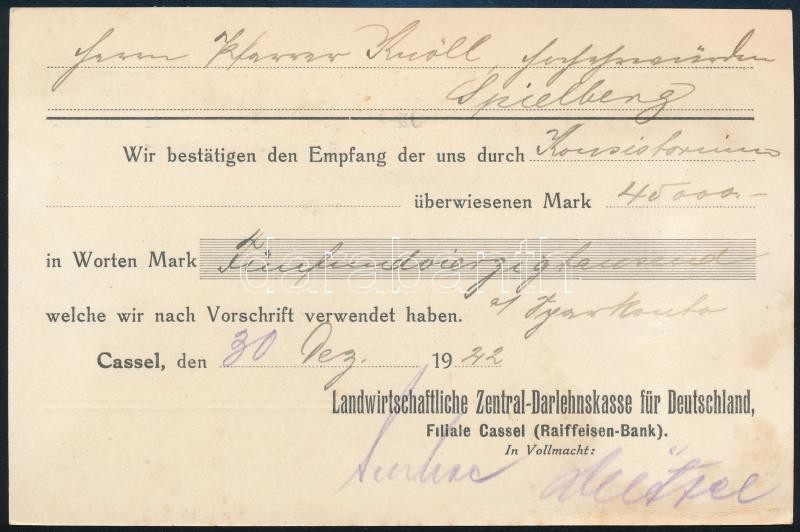 Herrn Pfarrer Knöll, Hochehrwürden
Spielberg
Wir bestätigen den Empfang der uns durch Konsistorium
überwiesenen Mark 45000.-
in Worten Mark Fünfundvierzigtausend
welche wir nach Vorschrift verwendet haben. a/ Sparkonto
Cassel, den 30 Dez. 1922
Landwirtschaftliche Zentral-Darlehnskasse für Deutschland,
Filiale Cassel (Raiffeisen-Bank).
In Vollmacht:
darabanth